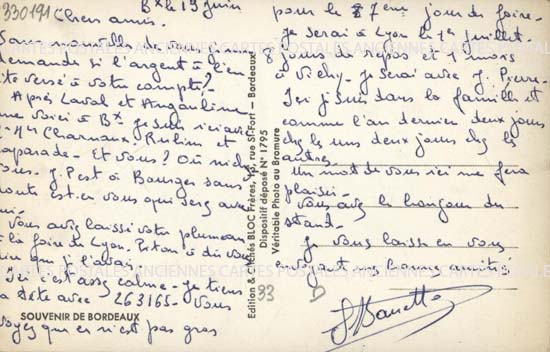 330191
Bx le 19 juin
Chers amis.
Sans nouvelle de vous je
demande si l'argent a bien
été versé à votre compte?
Après Laval et Angoulême
me voici à Bx je suis ici avec
Charnaux Rubim et
Laparade - Et vous? Où
vous. J. Pest à Bourges sans
doute Est-ce vous qui serez avec
lui -
Vous avez laissé votre plumeau
à la foire de Lyon. Pitan a dû vous
dire que je l'avais.
Ici c'est assez calme - je tiens
la tête avec 263165 - Vous
voyez que ce n'est pas gras
SOUVENIR DE BORDEAUX
Edition & Clichés BLOC Frères, rue St-Fort - Bordeaux
Dispositif déposé N° 1795
Véritable Photo au Bromure
pour le 7eme jour de foire -
Je serai à Lyon le 1er juillet -
8 jours de repos et 1 mois
à Vichy - je serai avec J. Pierre -
Ici je suis dans la famille et
comme l'an dernier deux jours
chez les uns deux jours chez les
autres -
Un mot de vous ici me fera
plaisir -
Vous avez le bonjour du
stand -
Je vous laisse en vous
envoyant mes bonnes amitiés
33
D
CARTES POSTALES ANCIENNES